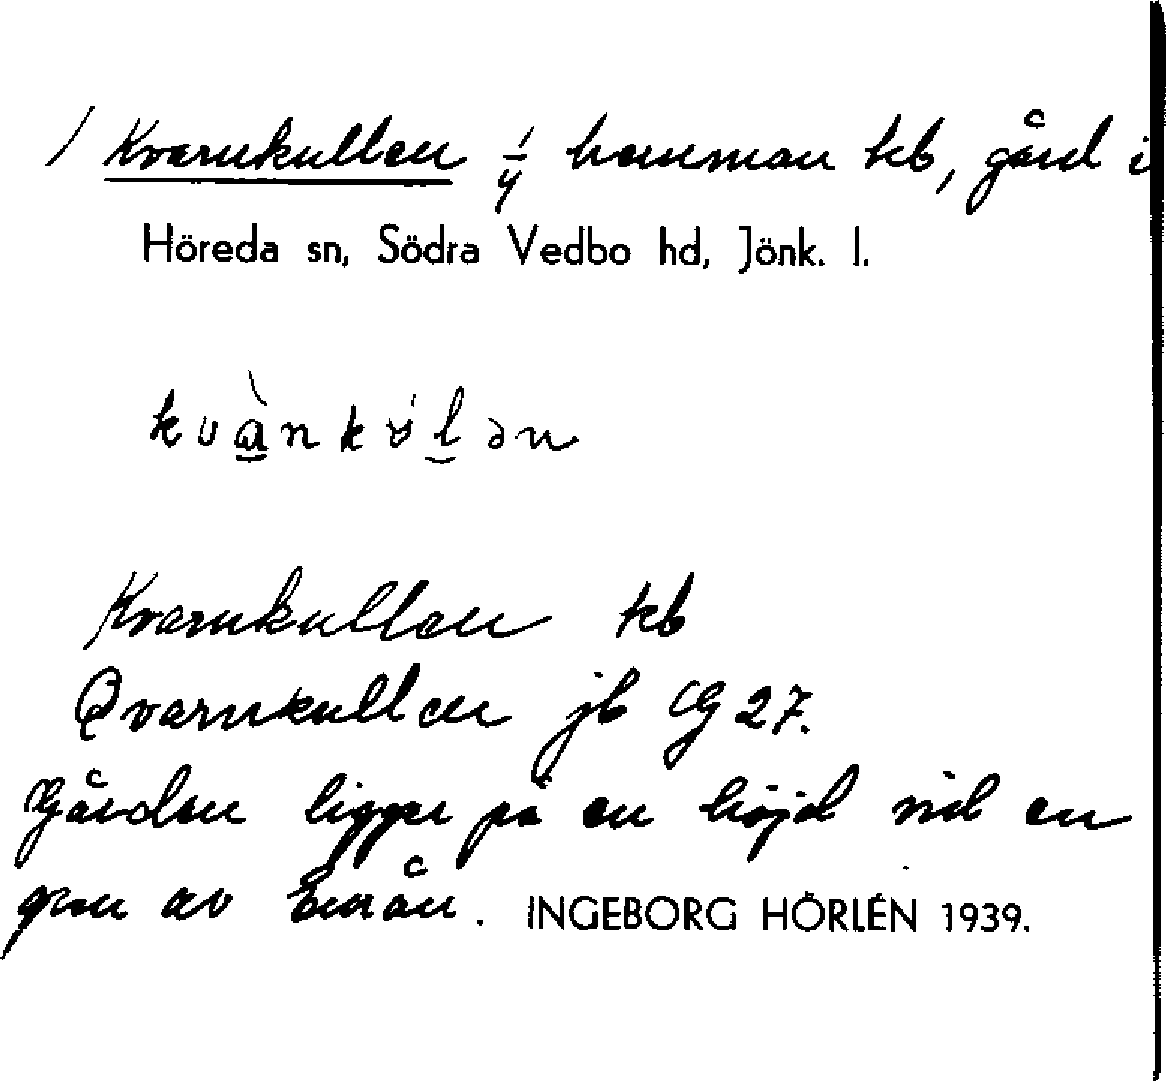 / Kvarnkullen 1/4 hemman kb, gård i
Höreda sn, Södra Vedbo hd, Jönk. l.
kvànkɵ́lən
Kvarnkullen kb
Qvarnkullen jb CG 27.
Gården ligger på en höjd vid en
gren av Emån. INGEBORG HÖRLÉN 1939.